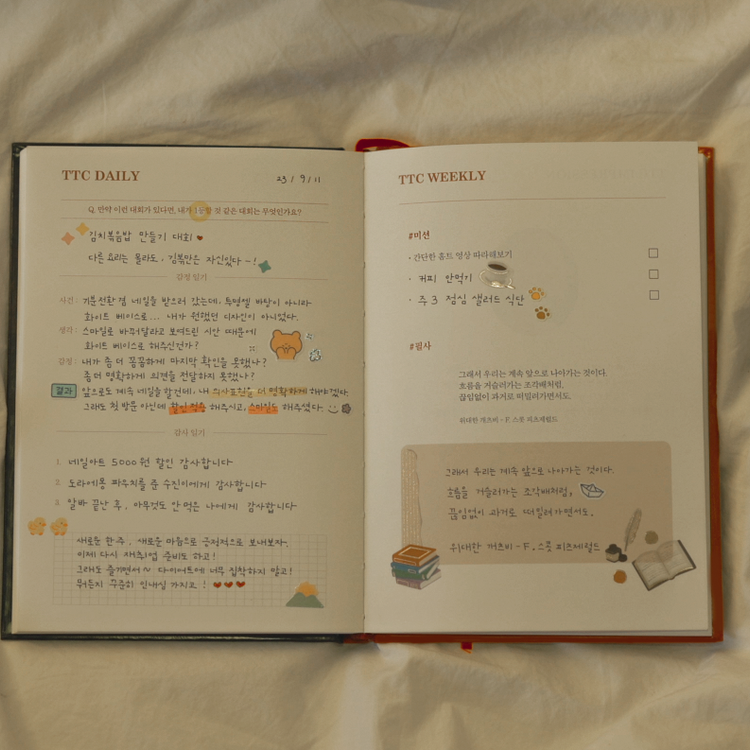 TTC DAILY
23 / 9 / 11
Q. 만약 이런 대회가 있다면, 내가 1등할 것 같은 대회는 무엇인가요?
김치볶음밥 만들기 대회
다른 요리는 몰라도, 김볶만은 자신있다 ~!
감정 일기
사건 : 기분전환 겸 네일을 받으러 갔는데, 투명엘 바탕이 아니라
화이트 베이스로... 내가 원했던 디자인이 아니었다.
생각 : 스마일로 바꾸달라고 보여드린 시안 때문에
화이트 베이스로 해주신건가?
감정 : 내가 좀 더 꼼꼼하게 마지막 확인을 못했나?
좀 더 명확하게 의견을 전달하지 못했나?
결과 앞으로도 계속 네일을 할건데, 내 의사표현을 더 명확하게 해야겠다.
그래도 첫 방문 아닌데 할인 적용 해주시고, 스마일도 해주셨다.
감사 일기
1. 네일아트 5000원 할인 감사합니다
2. 도라에몽 파우치를 준 수진이에게 감사합니다
3. 알바 끝난 후, 아무것도 안 먹은 나에게 감사합니다
새로운 한 주, 새로운 마음으로 긍정적으로 보내보자.
이제 다시 재취업 준비도 하고!
그래도 즐기면서~ 다이어트에 너무 집착하지 말고!
뭐든지 꾸준히 인내심 가지고!
TTC WEEKLY
#미션
· 간단한 홈트 영상 따라해보기
· 커피 안먹기
· 주 3 점심 샐러드 식단
#필사
그래서 우리는 계속 앞으로 나아가는 것이다.
흐름을 거슬러가는 조각배처럼,
끊임없이 과거로 떠밀려가면서도,
위대한 개츠비 - F. 스콧 피츠제럴드
그래서 우리는 계속 앞으로 나아가는 것이다.
흐름을 거슬러가는 조각배처럼,
끊임없이 과거로 떠밀려가면서도.
위대한 개츠비 - F. 스콧 피츠제럴드